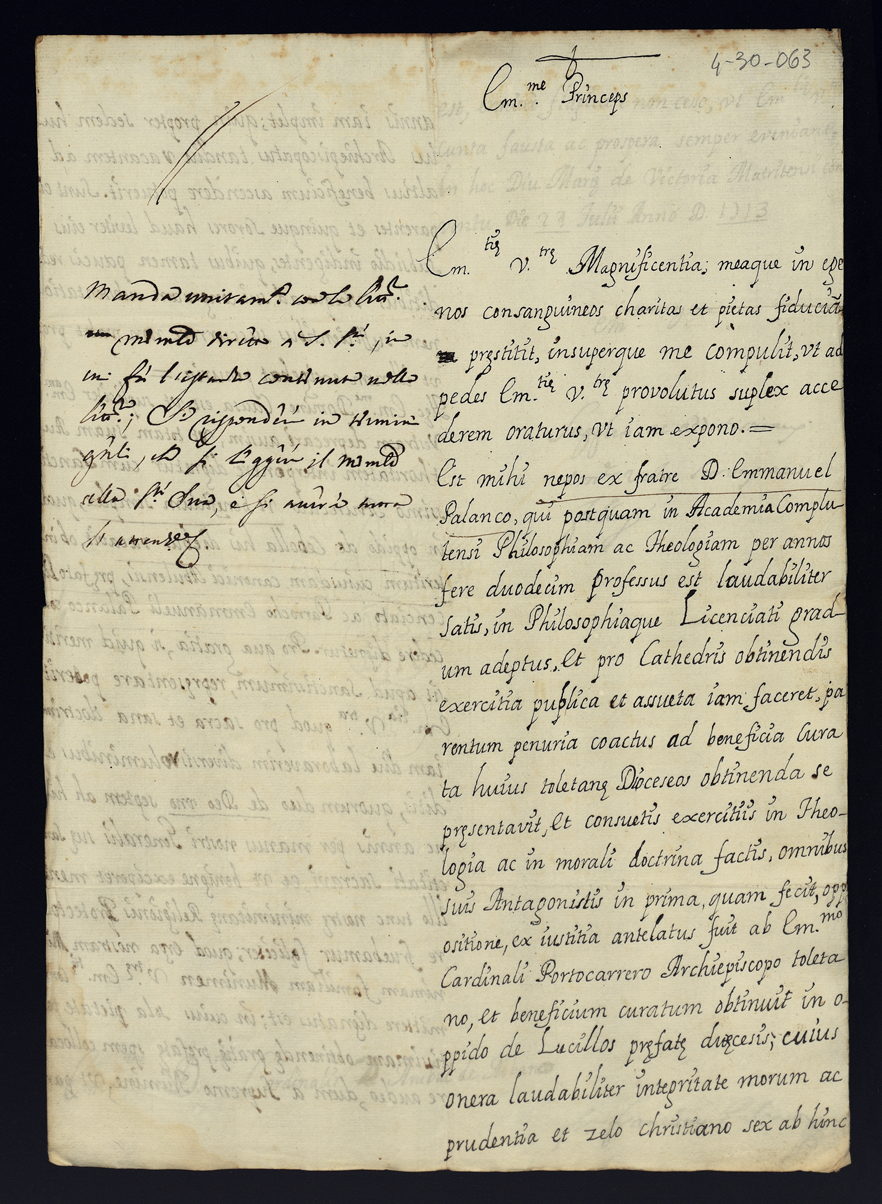 4-30-063
Em.me Princeps
Em.tię V.trę Magnificentia; meaque in ege
nos consanguineos charitas et pietas fiduciā
pręstitit, insuperque me compulit, vt ad
pedes Em.tię V.trę provolutus suplex acce
derem oraturus, vt iam expono.=
Est mihi nepos ex fratre D. Emmanuel
Palanco, qui postquam in Academia Complu
tensi Philosophiam ac Theologiam per annos
fere duodecim professus est laudabiliter
satis, in Philosophiaque Licenciati grad-
um adeptus, Et pro Cathedris obtinendis
exercitia puplica et assueta iam faceret, pa
rentum penuria coactus ad beneficia Cura
ta huius toletanę Dioceseos obtinenda se
pręsentavit, Et consuetis exercitiis in Theo-
logia ac in morali doctrina factis, omnibus
suis Antagonistis in prima, quam fecit, opp
ositione, ex iustitia antelatus fuit ab Em.mo
Cardinali Portocarrero Archiepiscopo toleta
no, et beneficium curatum obtinuit in o-
ppido de Lucillos pręfatę dięcesis; cuius
onera laudabiliter integritate morum ac
prudentia et zelo christiano sex ab hinc
Manda unitam.e con la
diretto à S. S.tà, in
cui fà l'istanza contenuta nella
; Si risponderà in termini
, che si leggerà il
alla S.tà Sua, e si averà